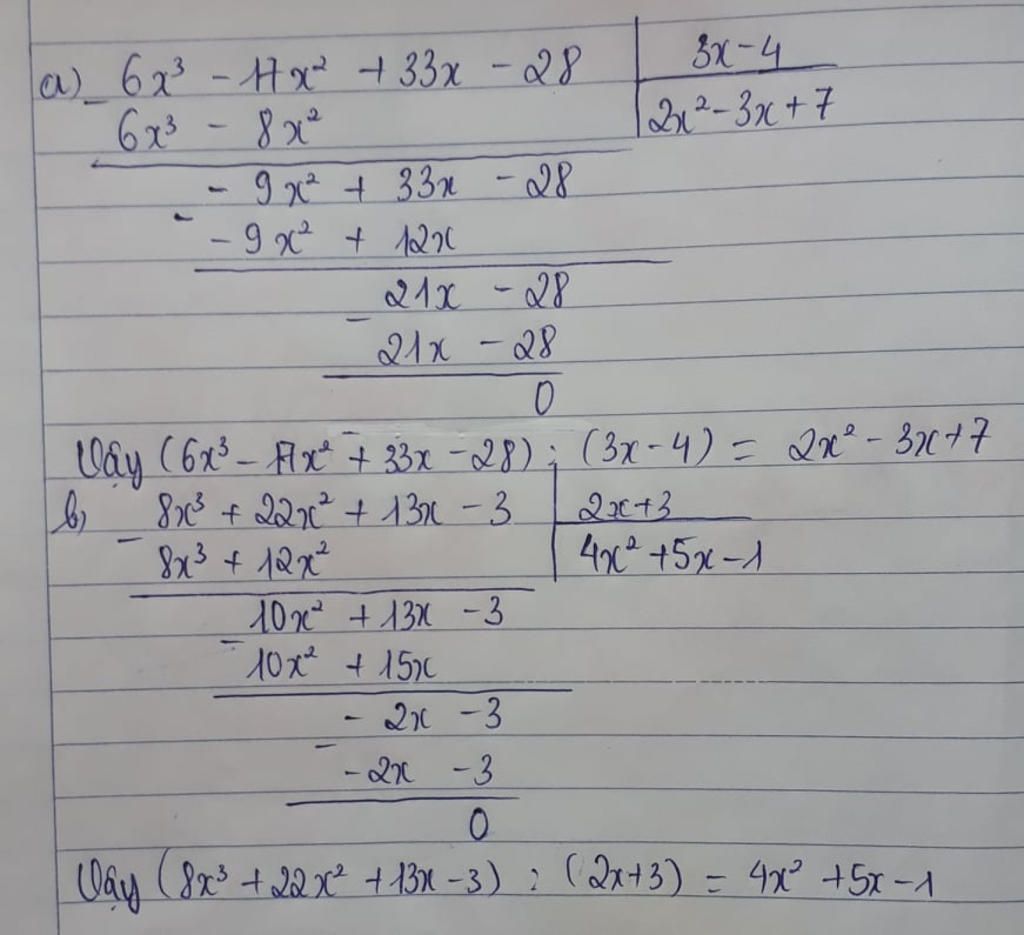 a) 6x³ - 17x² + 33x - 28 | 3x - 4
- 6x³ - 8x² | 2x² - 3x + 7
- 9x² + 33x - 28
- - 9x² + 12x
21x - 28
- 21x - 28
0
Vậy (6x³ - 17x² + 33x - 28) : (3x - 4) = 2x² - 3x + 7
b) 8x³ + 22x² + 13x - 3 | 2x + 3
- 8x³ + 12x² | 4x² + 5x - 1
10x² + 13x - 3
- 10x² + 15x
- 2x - 3
- - 2x - 3
0
Vậy (8x³ + 22x² + 13x - 3) : (2x + 3) = 4x² + 5x - 1